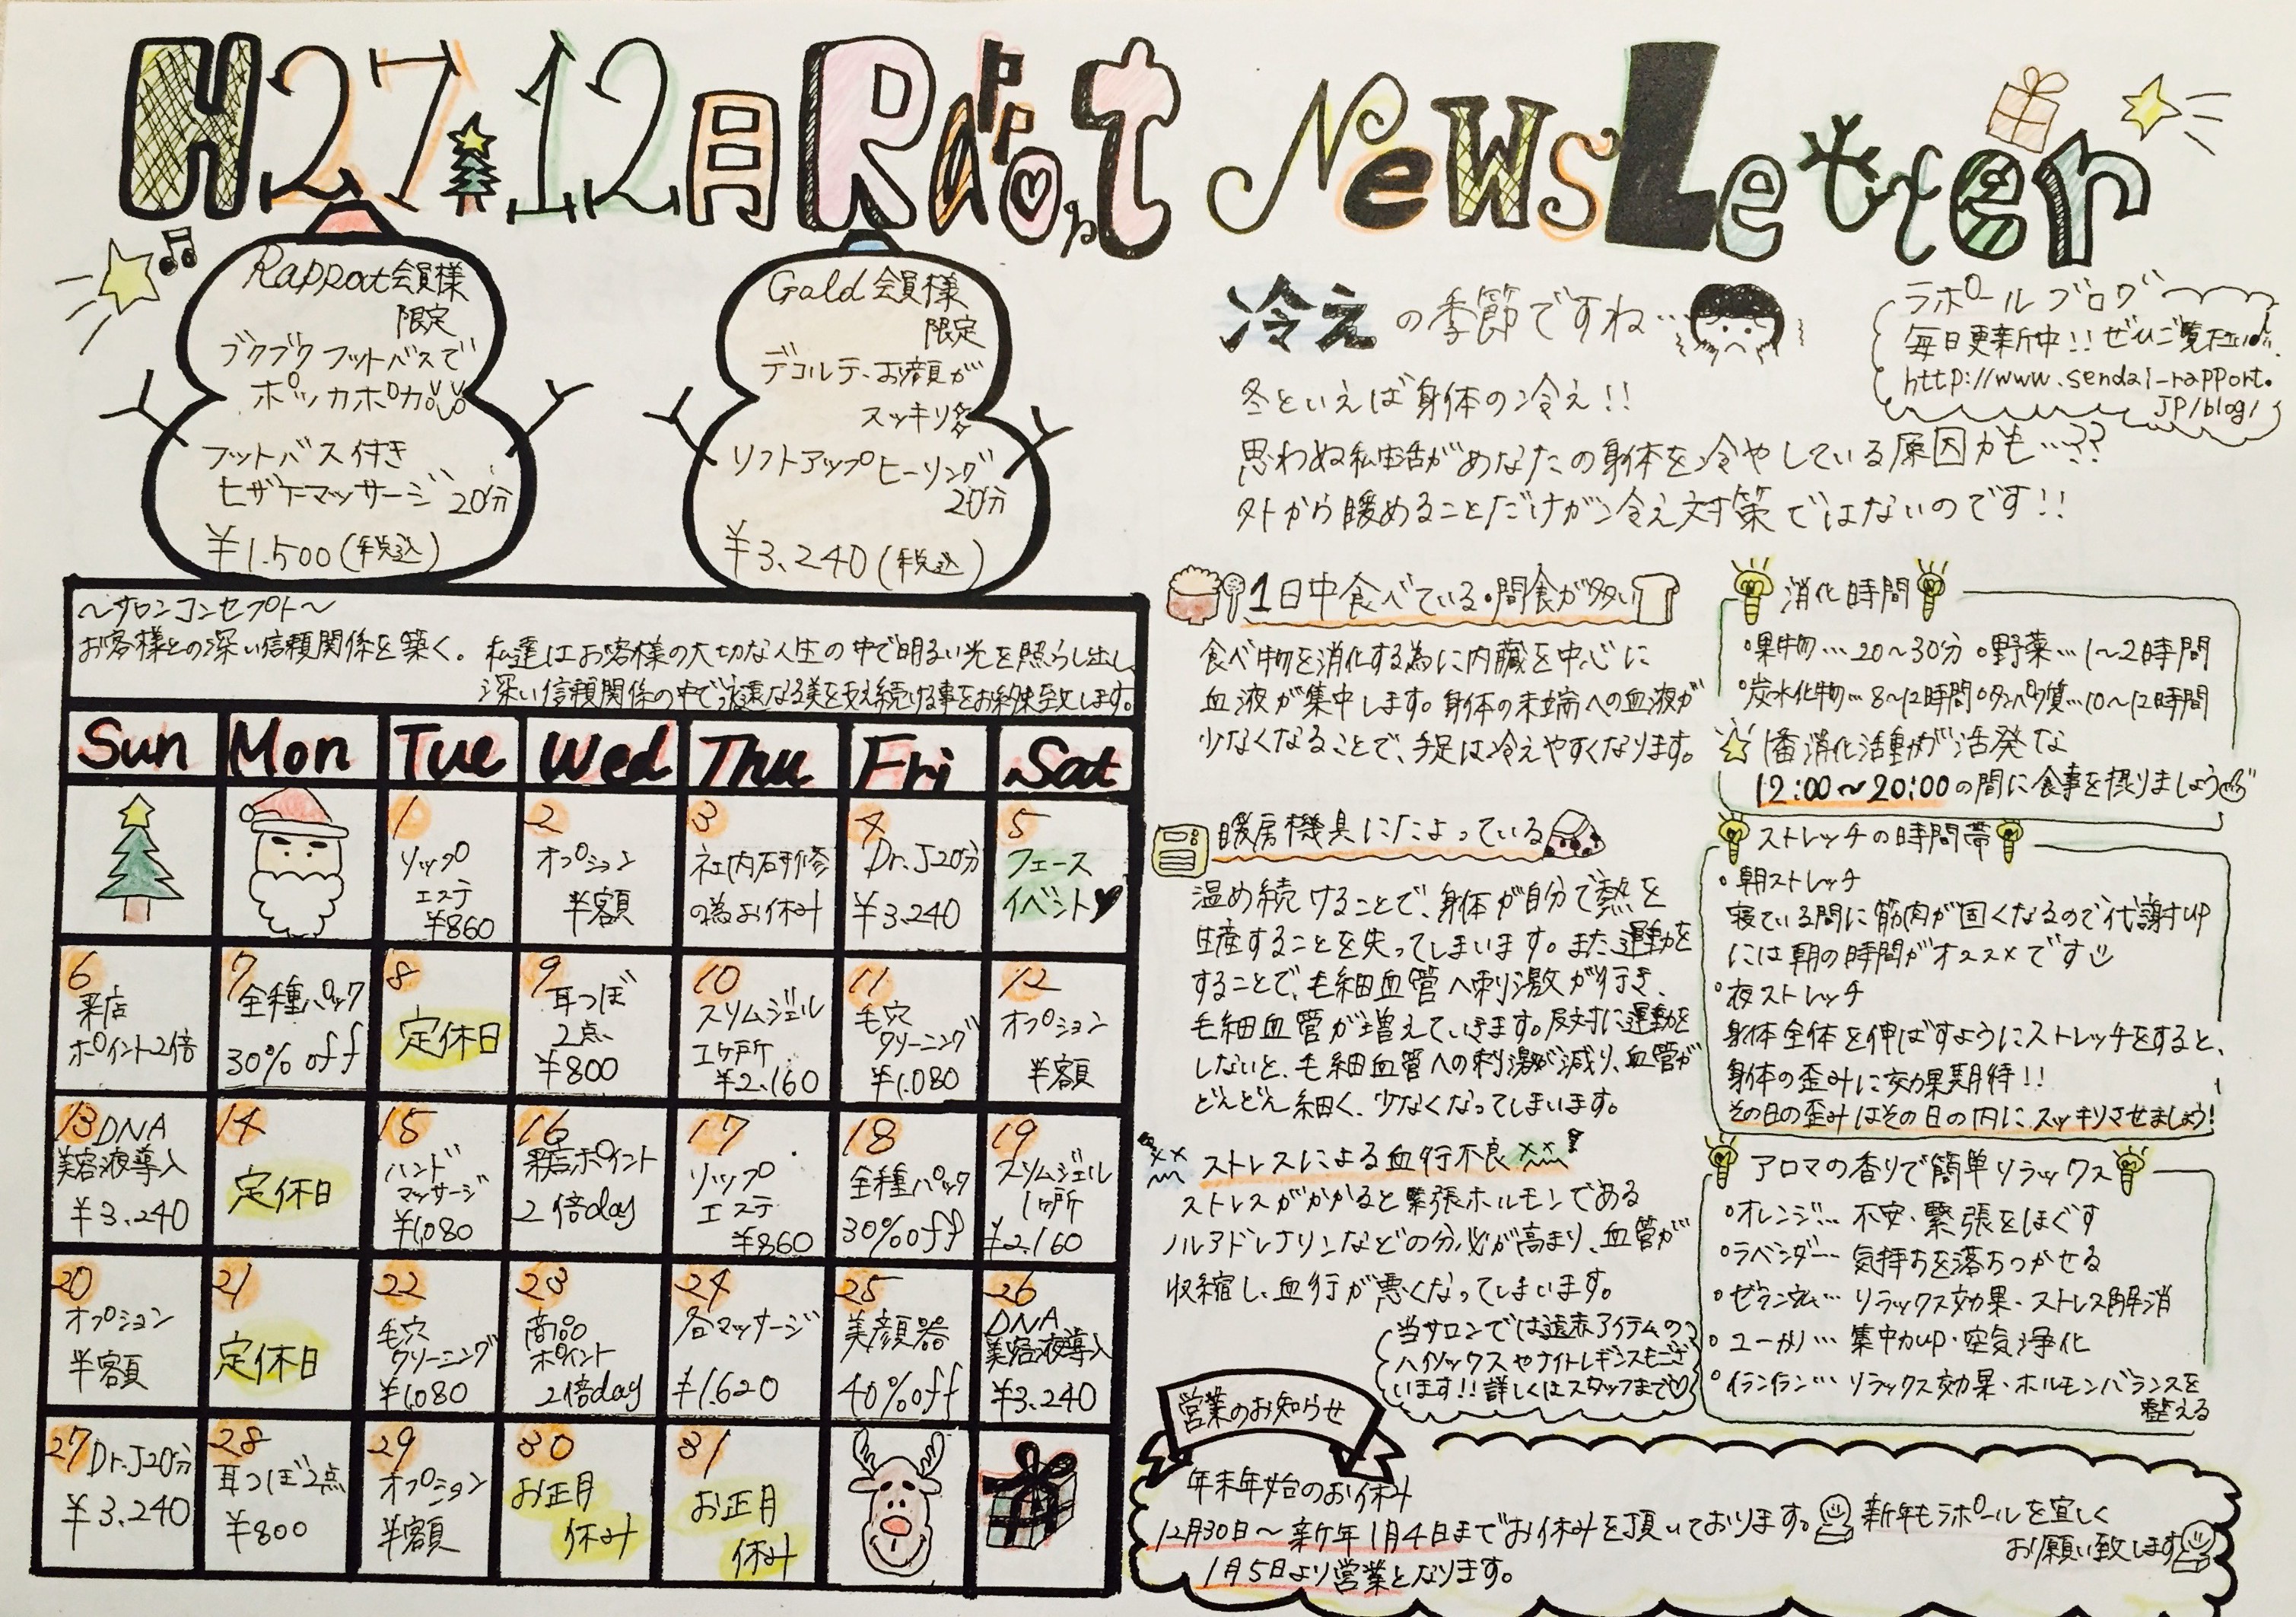 H27.12月 Rapport NewsLetter
Rapport会員様
限定
ブクブクフットバスで
ポッカポカ
フットバス付き
ヒザ下マッサージ 20分
¥1.500(税込)
Gald会員様
限定
デコルテ、お顔が
スッキリ
リフトアップヒーリング
20分
¥3.240(税込)
〜サロンコンセプト〜
お客様との深い信頼関係を築く。私達はお客様の大切な人生の中で明るい光を照らし出し、
深い信頼関係の中で永遠なる美を支え続ける事をお約束致します。
Sun Mon Tue Wed Thu Fri Sat
1
リップ
エステ
¥860
2
オプション
半額
3
社内研修
の為お休み
4
Dr.J20分
¥3.240
5
フェース
イベント♥
6
来店
ポイント2倍
7
全種パック
30%off
8
定休日
9
耳つぼ
2点
¥800
10
スリムジェル
1ヶ所
¥2.160
11
毛穴
クリーニング
¥1.080
12
オプション
半額
13 DNA
美容液導入
¥3.240
14
定休日
15
ハンド
マッサージ
¥1,080
16
来店ポイント
2倍day
17
リップ
エステ
¥860
18
全種パック
30%off
19
スリムジェル
1ヶ所
¥2.160
20
オプション
半額
21
定休日
22
毛穴
クリーニング
¥1,080
23
商品
ポイント
2倍day
24
各マッサージ
¥1.620
25
美顔器
40%off
26
DNA
美容液導入
¥3.240
27 Dr.J20分
¥3.240
28
耳つぼ2点
¥800
29
オプション
半額
30
お正月
休み
31
お正月
休み
冷えの季節ですね…
ラポールブログ
毎日更新中!!ぜひご覧下さい♪
http://www.sendai-rapport.
jp/blog/
冬といえば身体の冷え!!
思わぬ私生活があなたの身体を冷やしている原因かも…??
外から暖めることだけが冷え対策ではないのです!!
1日中食べている・間食が多い
食べ物を消化する為に内臓を中心に
血液が集中します。身体の末端への血液が
少なくなることで、手足は冷えやすくなります。
暖房機具にたよっている
温め続けることで、身体が自分で熱を
生産することを失ってしまいます。また運動を
することで、毛細血管へ刺激が行き、
毛細血管が増えていきます。反対に運動を
しないと、毛細血管への刺激が減り、血管が
どんどん細く、少なくなってしまいます。
ストレスによる血行不良
ストレスがかかると緊張ホルモンである
ノルアドレナリンなどの分泌が高まり、血管が
収縮し、血行が悪くなってしまいます。
当サロンでは遠赤アイテムの
ハイソックスやナイトレギンスもござ
います!!詳しくはスタッフまで♡
消化時間
・果物…20〜30分 ・野菜…1〜2時間
・炭水化物…8〜12時間 ・タンパク質…10〜12時間
☆1番消化活動が活発な
12:00〜20:00の間に食事を摂りましょう
ストレッチの時間帯
・朝ストレッチ
寝ている間に筋肉が固くなるので代謝UP
には朝の時間がオススメです
・夜ストレッチ
身体全体を伸ばすようにストレッチをすると、
身体の歪みに効果期待!!
その日の歪みはその日の内にスッキリさせましょう!
アロマの香りで簡単リラックス
・オレンジ… 不安・緊張をほぐす
・ラベンダー… 気持ちを落ちつかせる
・ゼラニウム… リラックス効果・ストレス解消
・ユーカリ… 集中力up・空気浄化
・イランイラン… リラックス効果・ホルモンバランスを
整える
営業のお知らせ
年末年始のお休み
12月30日〜新年1月4日までお休みを頂いております。
1月5日より営業となります。
新年もラポールを宜しく
お願い致します